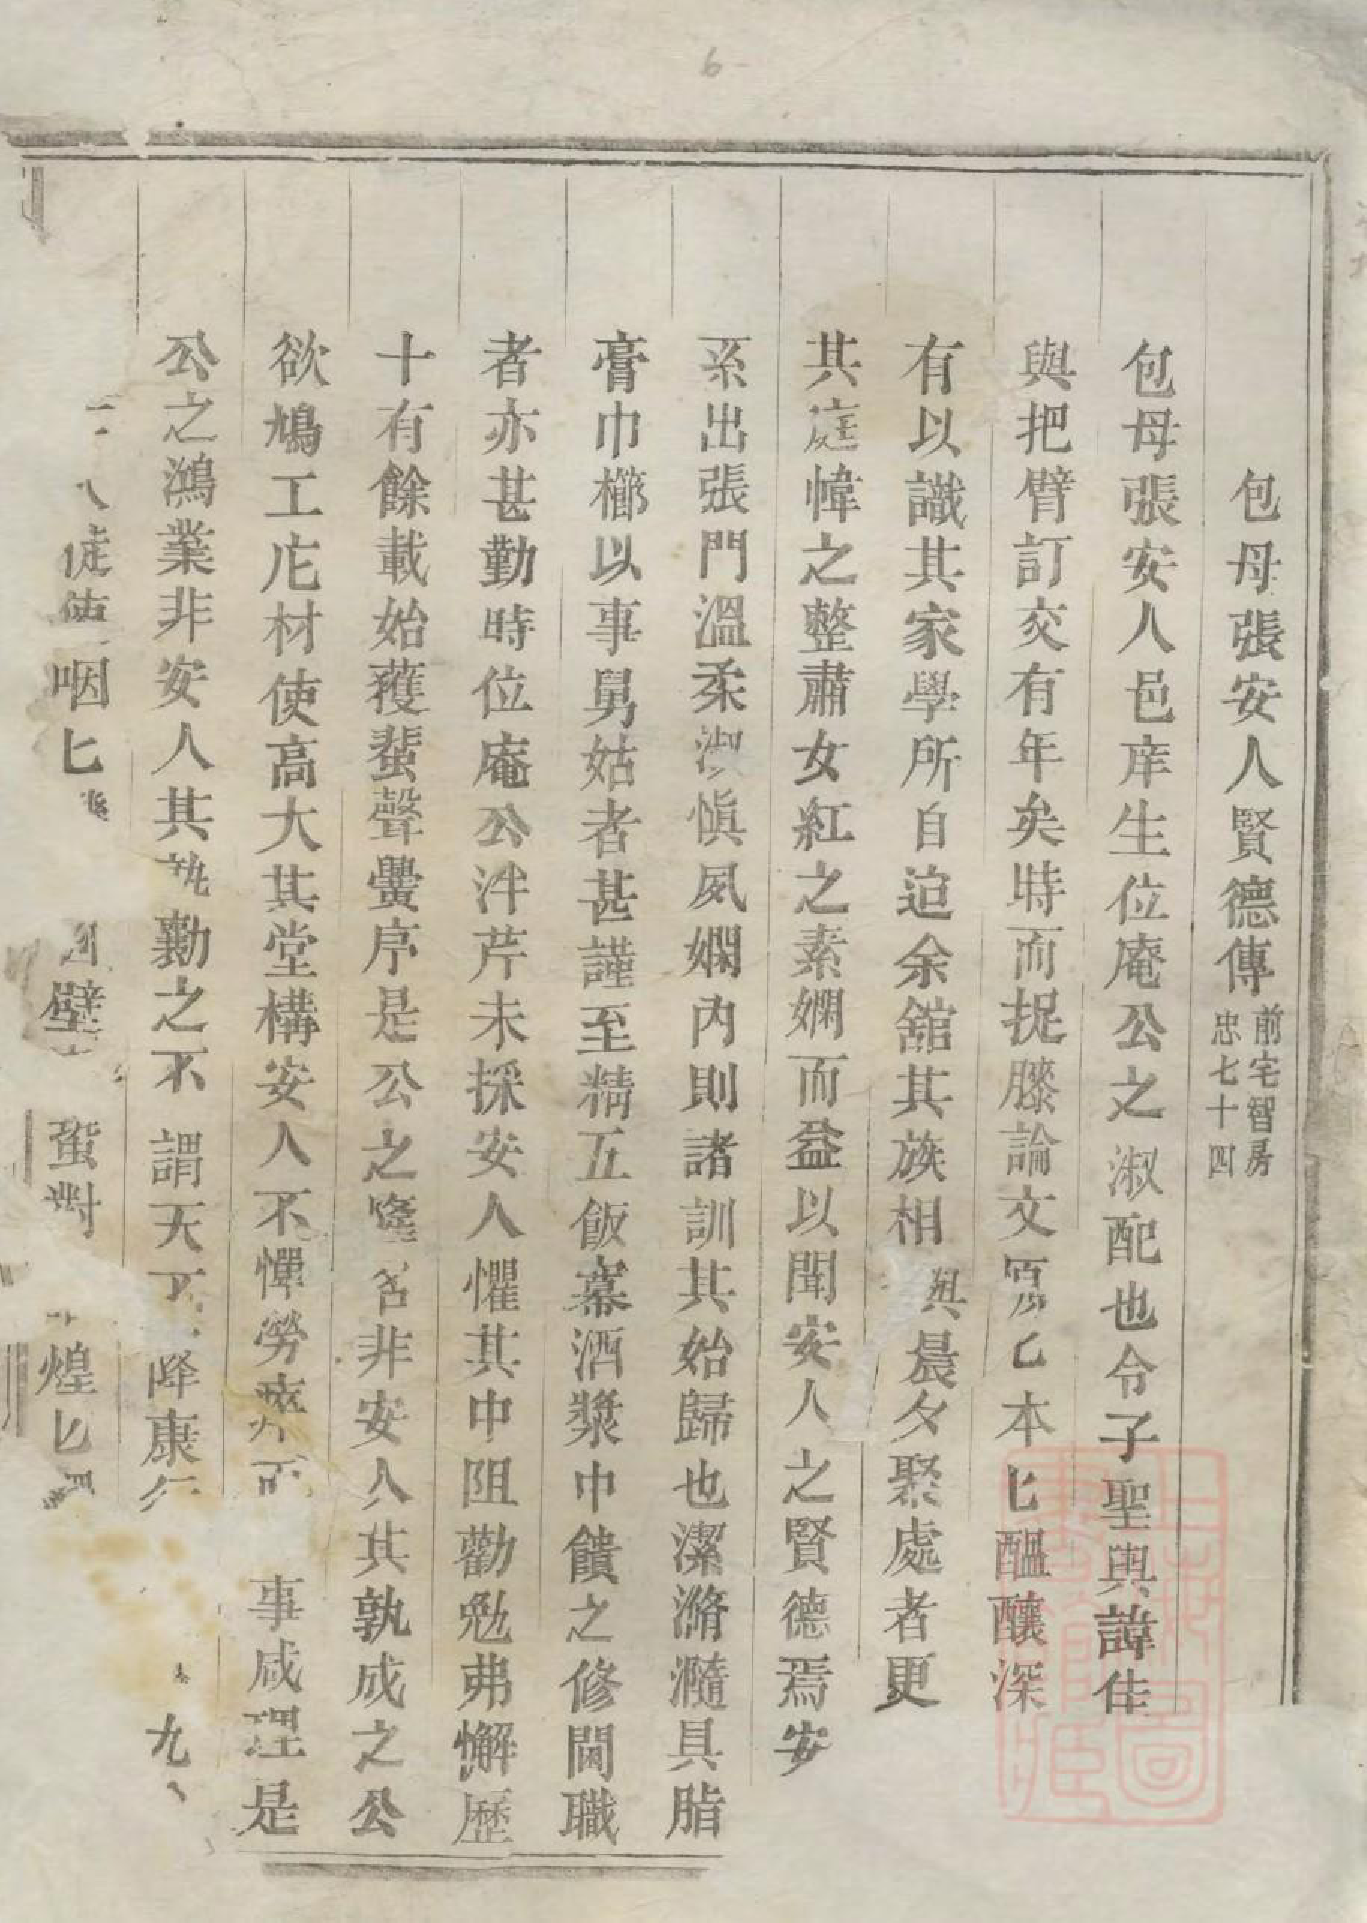 6
包母張安人賢德傳 前宅智房 忠七十四
包母張安人邑庠生位庵公之淑配也令子聖與諱佳
與把臂訂交有年矣時而捉膝論文冩乙本匕醖釀深
有以識其家學所自迨余舘其族相與晨夕聚處者更
其庭幃之整肅女紅之素嫻而益以聞安人之賢德焉安
系出張門溫柔淑慎夙嫻內則諸訓其始歸也潔滫瀡具脂
膏巾櫛以事舅姑者甚謹至精五飯冪酒漿中饋之修閫職
者亦甚勤時位庵公泮芹未採安人懼其中阻勸勉弗懈歷
十有餘載始獲蜚聲黌序是公之隆名非安人其孰成之公
欲鳩工庀材使高大其堂構安人不憚勞瘁 事咸理是
公之鴻業非安人其孰勷之不 謂天不降康 九
徒使咽匕 壁 蛩對 煌匕
上海圖書館藏